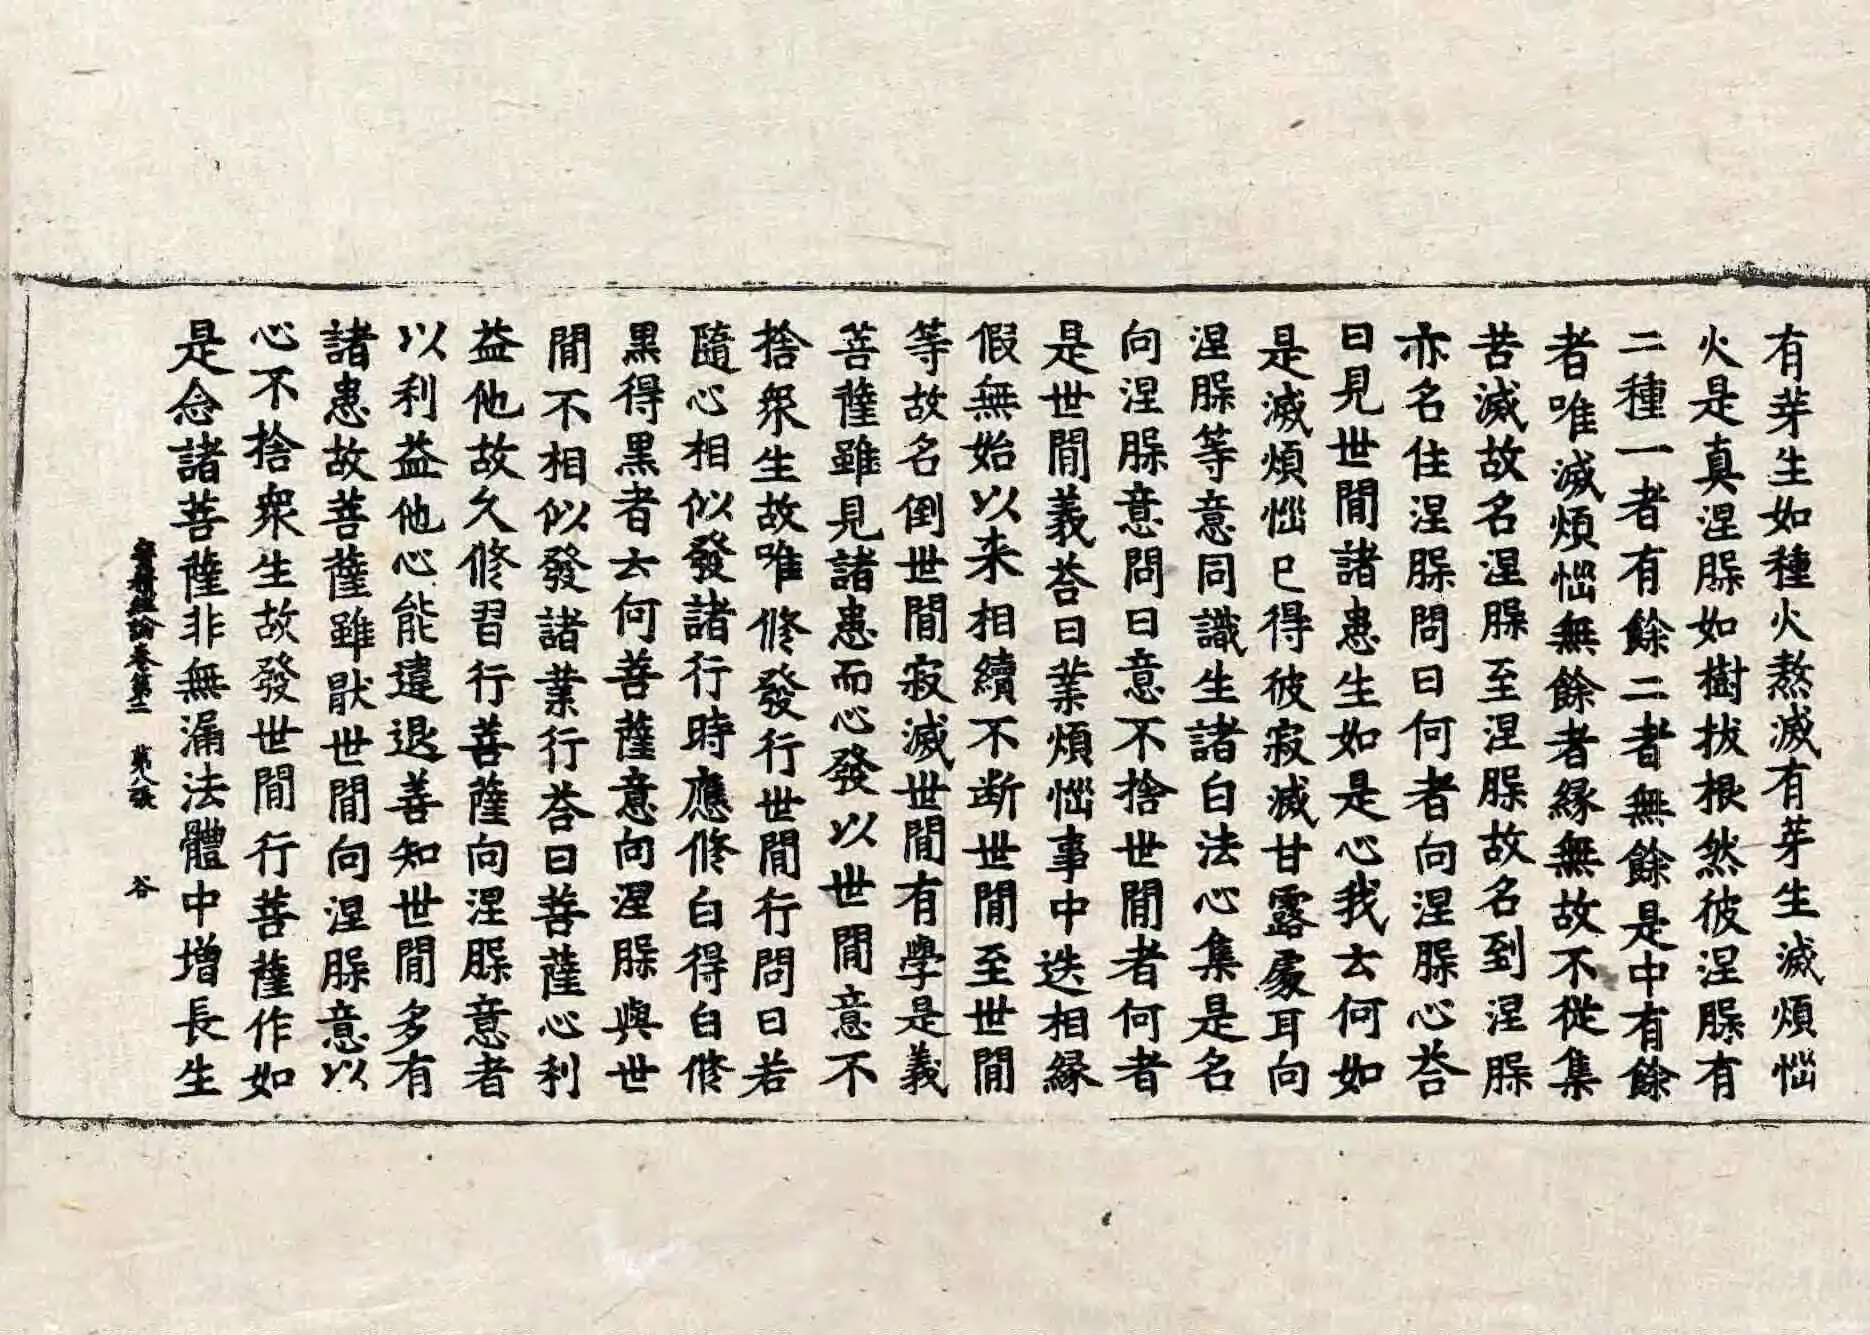 有芽生如種火熬滅有芽生滅煩惱
火是真涅槃如樹拔根然彼涅槃有
二種一者有餘二者無餘是中有餘
者唯滅煩惱無餘者緣無故不從集
苦滅故名涅槃至涅槃故名到涅槃
亦名住涅槃問曰何者向涅槃心荅
曰見世間諸患生如是心我去何如
是滅煩惱已得彼寂滅甘露處耳向
涅槃等意同識生諸白法心集是名
向涅槃意問曰意不捨世間者何者
是世間義荅曰業煩惱事中迭相緣
假無始以来相續不断世間至世間
等故名倒世間寂滅世間有學是義
菩薩雖見諸患而心發以世間意不
捨衆生故唯修發行世間行問曰若
隨心相似發諸行時應修白得白修
黑得黑者去何菩薩意向涅槃與世
間不相似發諸業行荅曰菩薩心利
益他故久修習行菩薩向涅槃意者
以利益他心能違退善知世間多有
諸患故菩薩雖猒世間向涅槃意以
心不捨衆生故發世間行菩薩作如
是念諸菩薩非無漏法體中增長生
寶積經論卷第三 第八張 谷